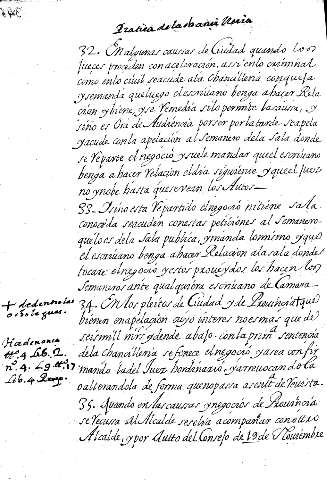 Pratica de la chançilleria
32. En algunas causas de Ciudad quando los
Jueces proceden con aceleracion, assi en lo criminal
como en lo civil se acude a la Chancilleria con queja
y se manda que luego el escrivano benga a hacer Rela
cion y biene, y se Remedia si lo permite la causa, y
sino es Ora de Audiencia por ser por la tarde se apela
y acude con la apelacion al Semanero de la sala donde
se Reparte el negocio y suele mandar que el escrivano
benga a hacer Relacion el dia siguiente y que el Juez
no ynobe hasta que se vean los Autos
33. Y si no esta Repartido el negocio ni tiene sala
conocida se acuden con estas peticiones al Semanero
que lo es de la Sala publica, y manda lo mismo y que
el escrivano benga a hacer Relacion a la sala donde
tocare el negocio y estos proveydos los hacen los
Semaneros ante qualquiera escrivano de Camara
34. En los pleitos de Ciudad y de Provincia + que
bienen en apelacion cuyo interes no es mas que de
seis mil mrs y dende abajo con la prim.ª sentencia
de la Chancilleria se fenece el negocio, y a sea confir
mando la del Juez hordenario, y a rrevocandola
o alterandola de forma que no passa a segunda Revista
35. Quando en las caussas y negocios de Provincia
se Recussa al Alcalde se suele acompañar con otro
Alcalde, y por Auto del Consejo de 19 de Noviembre
+ de dentro las
ocho leguas.
Hordenança
nº 4 Lib. 2.
nº 4. L 9 tit º 7
Lib. 4 Recop.